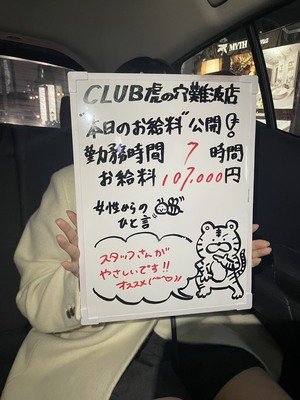 CLUB虎の穴難波店
"本日のお給料"公開!
勤務時間 7 時間
お給料 107,000円
女性からの
ひと言
スタッフさんが
やさしいです!!
オススメ(^^♡)♪
MYTH